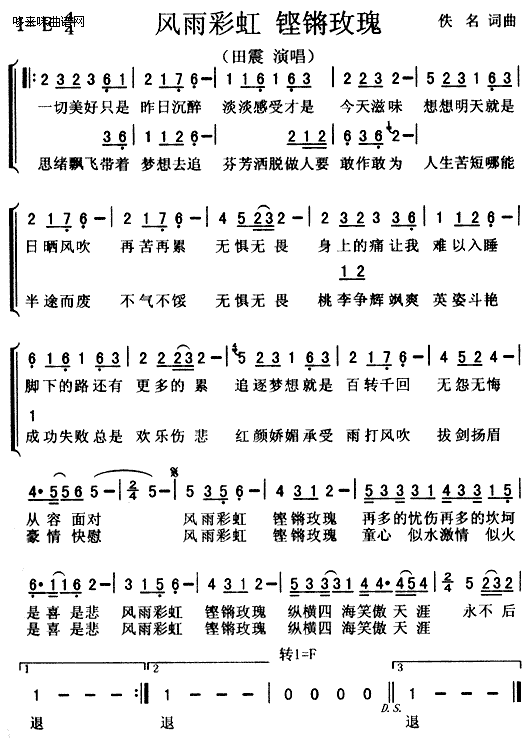 风雨彩虹 铿锵玫瑰
佚 名 词曲
（田震 演唱）
2 3 2 3 6 1 | 2 1 7 6 – | 1 2 1 6 6 3 | 2 1 7 6 – | 5 2 3 1 6 3 |
一切美好只是 昨日沉醉 淡淡感受才是 今天滋味 想想明天就是
3 6 | 1 1 2 – | 2 1 2 | 6 3 6 2 – |
思绪飘飞带着 梦想去追 芬芳洒脱做人要 敢作敢为 人生苦短哪能
2 1 7 6 | 2 1 7 6 – | 4 5 2 3 2 – | 2 3 2 3 3 6 | 1 1 2 6 – |
日晒风吹 再苦再累 无惧无畏 身上的痛让我 难以入睡
1 2
半途而废 不气不馁 无惧无畏 桃李争辉飒爽 英姿斗艳
6 1 6 1 6 3 | 2 2 2 3 2 – | 5 2 3 1 6 3 | 2 1 7 6 – | 4 5 2 4 – |
脚下的路还有 更多的 累 追逐梦想就是 百转千回 无怨无悔
1
成功失败总是 欢乐伤 悲 红颜娇媚承受 雨打风吹 拔剑扬眉
4· 5 5 6 5 – | 2/4 5 – | 5 3 5 6 – | 4 3 1 2 – | 5 3 3 3 5 3 3 1 |
从容 面对 风雨彩虹 铿锵玫瑰 再多的忧伤再多的坎坷
豪情 快慰 风雨彩虹 铿锵玫瑰 童心 似水激情 似火
6· 1 1 6 2 – | 3 1 5 6 – | 4 3 1 2 – | 5 3 3 1 4· 4 | 4 5 4 5 – | 2/4 5 2 3 2 |
是喜是悲 风雨彩虹 铿锵玫瑰 纵横四 海笑傲 天 涯 永不 后
是喜是悲 风雨彩虹 铿锵玫瑰 纵横四 海笑傲 天 涯
转1=F
1 2 3
1 – – – :| 1 – – – | 0 0 0 0 | 1 – – – |
D.S.
退 退 退